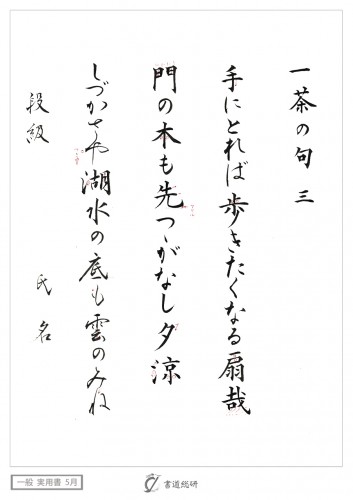 一茶の句 三
手にとれば歩きたくなる扇哉
門の木も先つゝがなし夕涼
しづかさや湖水の底も雲のみね
段級 氏名
一般 実用書 5月
書道総研